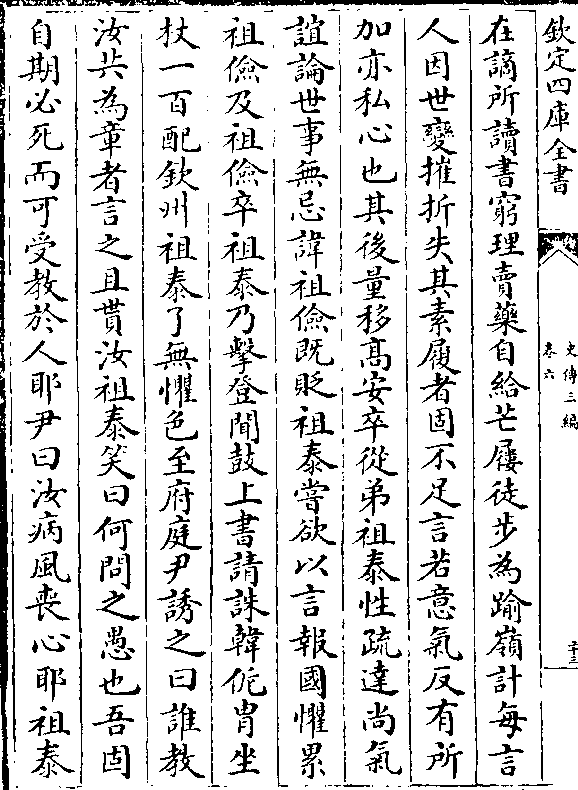 欽定四庫全書
史傳三編
卷六
二十三
在謫所讀書窮理賣藥自給芒屨徒步為踰嶺計每言
人因世變摧折失其素履者固不足言若意氣反有所
加亦私心也其後量移髙安卒從弟祖泰性疏達尚氣
誼論世事無忌諱祖儉既貶祖泰嘗欲以言報國懼累
祖儉及祖儉卒祖泰乃擊登聞鼓上書請誅韓侂胄坐
杖一百配欽州祖泰了無懼色至府庭尹誘之曰誰教
汝共為章者言之且貰汝祖泰笑曰何問之愚也吾固
自期必死而可受教於人耶尹曰汝病風喪心耶祖泰